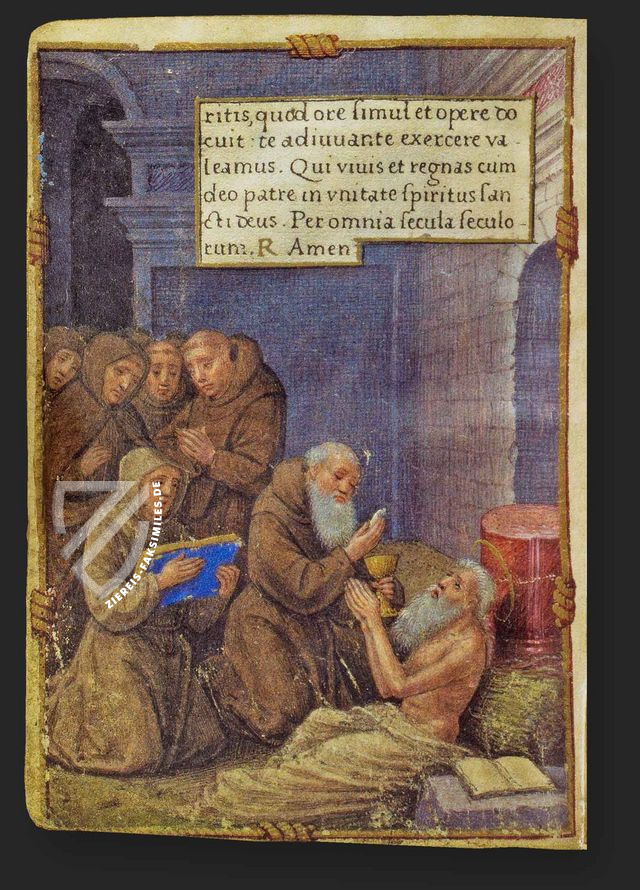 ritis, quod ore simul et opere do
cuit: te adiuuante exercere va
leamus. Qui viuis et regnas cum
deo patre in vnitate spiritus san
cti deus. Per omnia secula seculo
rum. R Amen
ZIEREIS-FAKSIMILES.DE